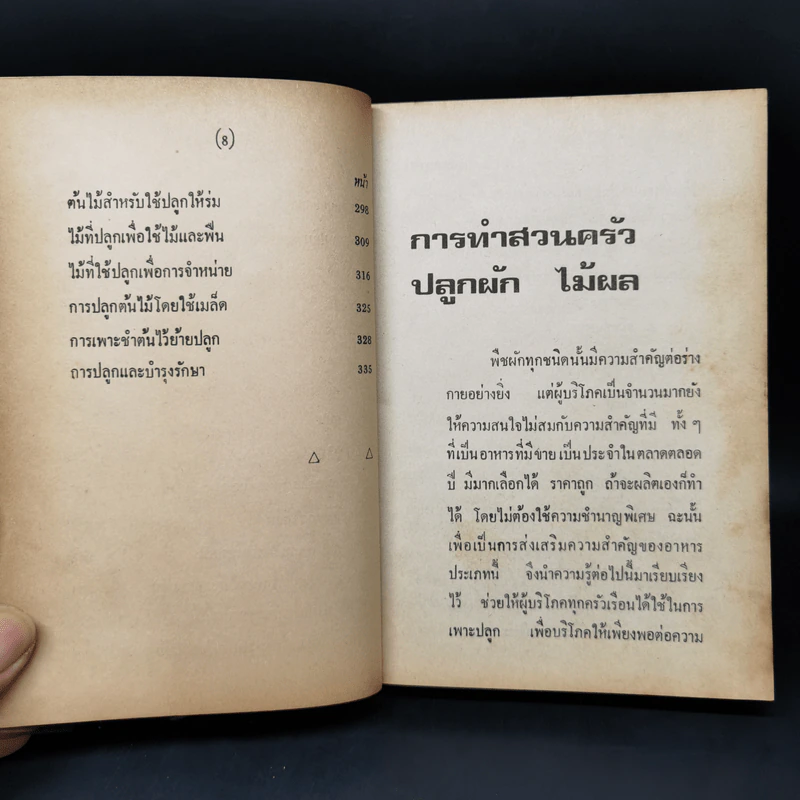 (8)
หน้า
ต้นไม้สำหรับใช้ปลูกให้ร่ม 298
ไม้ที่ปลูกเพื่อใช้ไม้และฟืน 309
ไม้ที่ใช้ปลูกเพื่อการจำหน่าย 316
การปลูกต้นไม้โดยใช้เมล็ด 325
การเพาะชำต้นไว้ย้ายปลูก 328
การปลูกและบำรุงรักษา 335
△ △
การทำสวนครัว
ปลูกผัก ไม้ผล
พืชผักทุกชนิดนั้นมีความสำคัญต่อร่าง
กายอย่างยิ่ง แต่ผู้บริโภคเป็นจำนวนมากยัง
ให้ความสนใจไม่สมกับความสำคัญที่มี ทั้ง ๆ
ที่เป็นอาหารที่มีขายเป็นประจำในตลาดตลอด
ปี มีมากเลือกได้ ราคาถูก ถ้าจะผลิตเองก็ทำ
ได้ โดยไม่ต้องใช้ความชำนาญพิเศษ ฉะนั้น
เพื่อเป็นการส่งเสริมความสำคัญของอาหาร
ประเภทนี้ จึงนำความรู้ต่อไปนี้มาเรียบเรียง
ไว้ ช่วยให้ผู้บริโภคทุกครัวเรือนได้ใช้ในการ
เพาะปลูก เพื่อบริโภคให้เพียงพอต่อความ